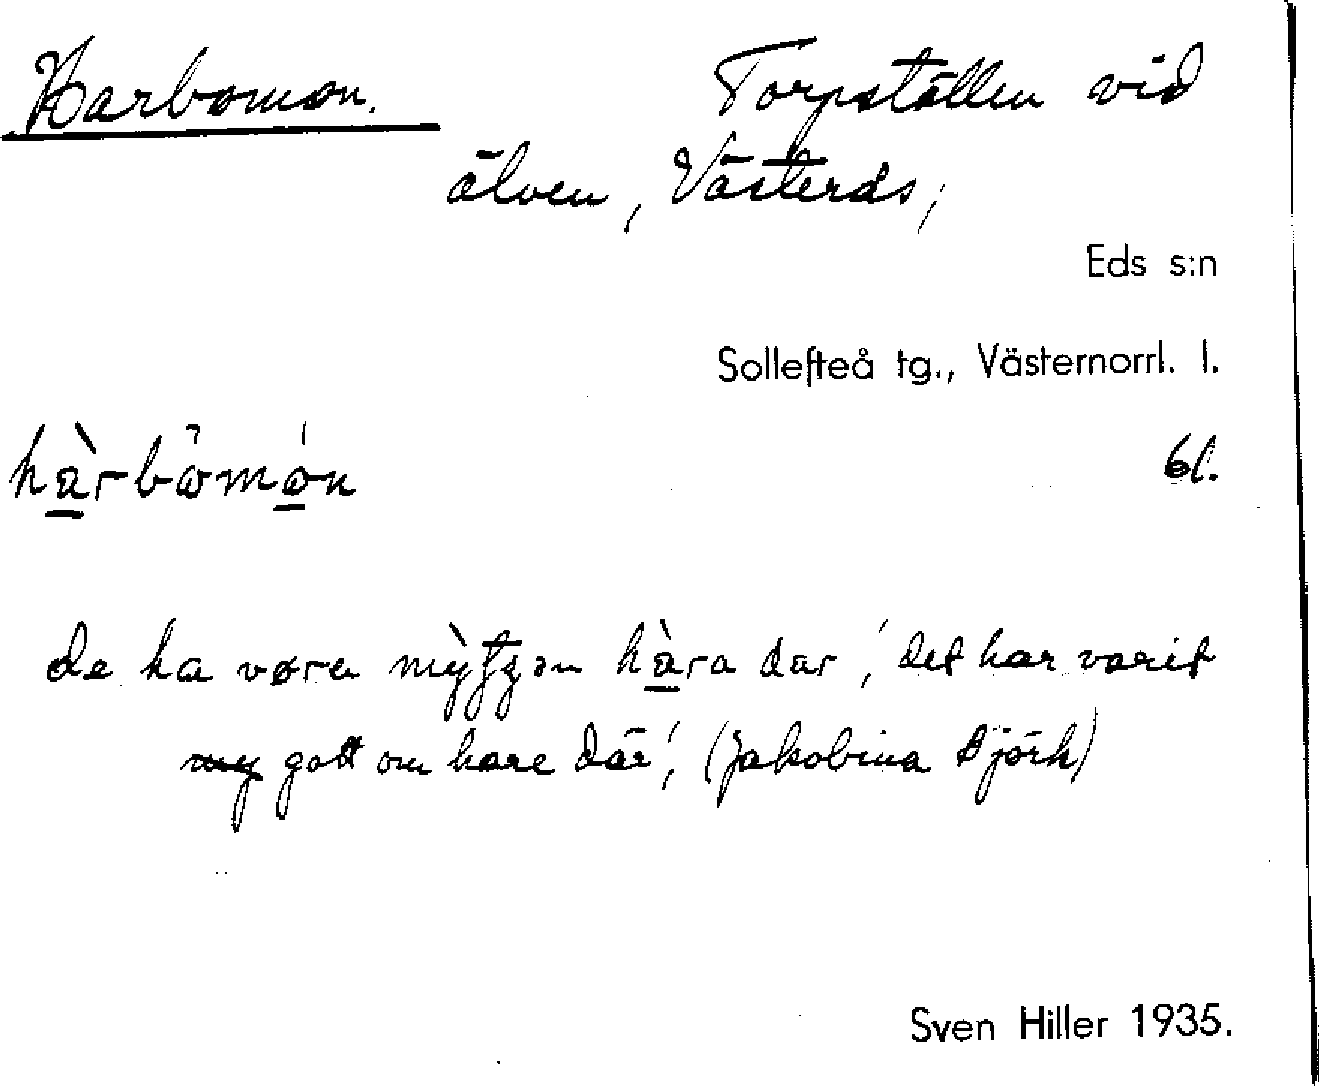 Harbomon. Torpställen vid
älven, Västerås,
Eds s:n
Sollefteå tg., Västernorrl. l.
hàrbomon 61.
de ha vøre hàra dar, 'det har varit
my gott om hare där', (Jakobina Björk)
Sven Hiller 1935.